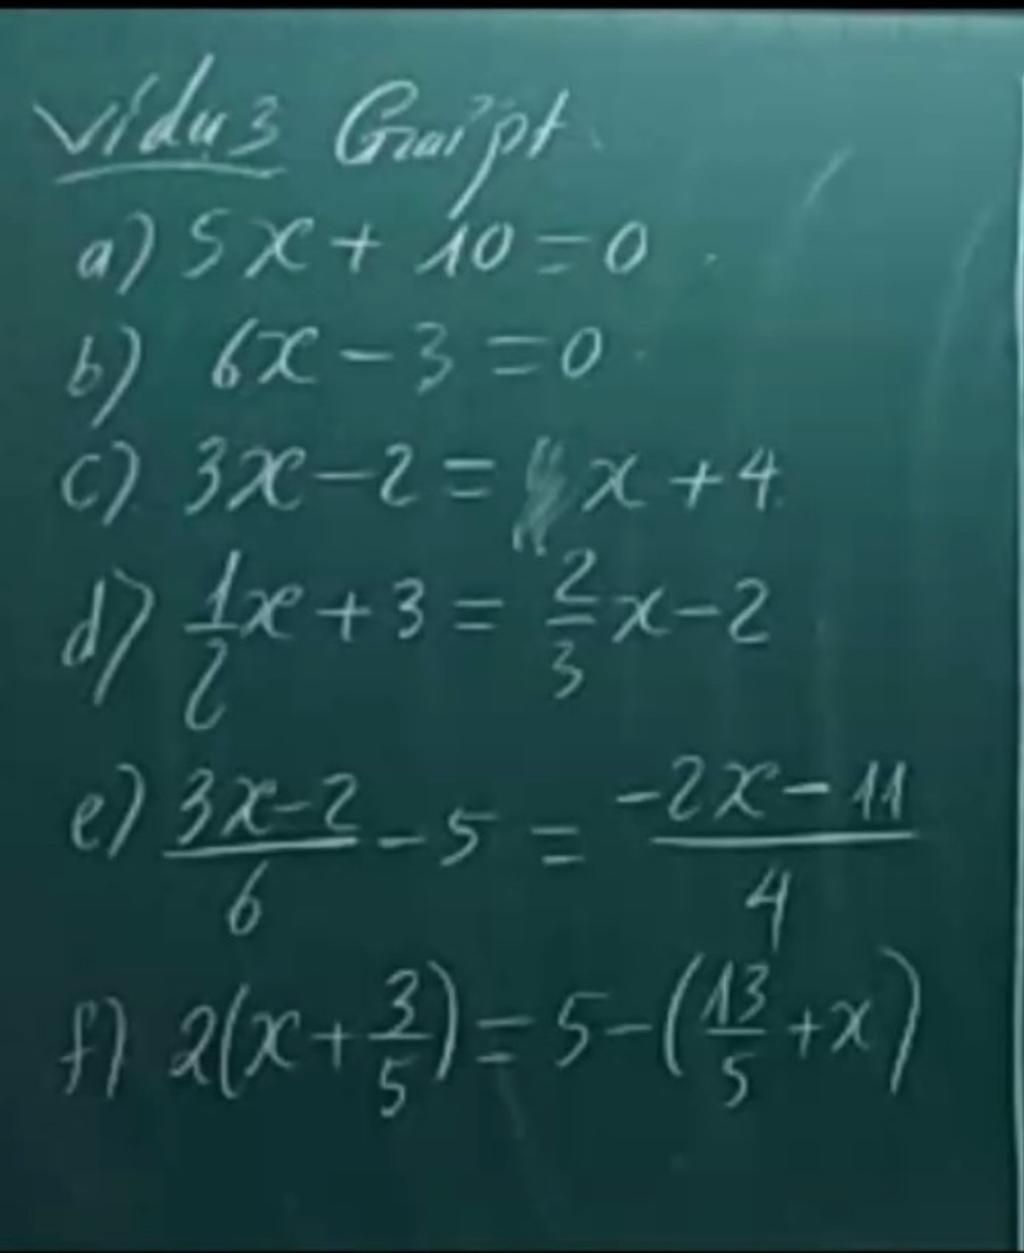 Ví dụ 3 Giải pt
a) 5x + 10 = 0
b) 6x - 3 = 0
c) 3x - 2 = x + 4
d) 1/2 x + 3 = 2/3 x - 2
e) (3x-2)/6 - 5 = (-2x-11)/4
f) 2(x + 3/5) = 5 - (13/5 + x)